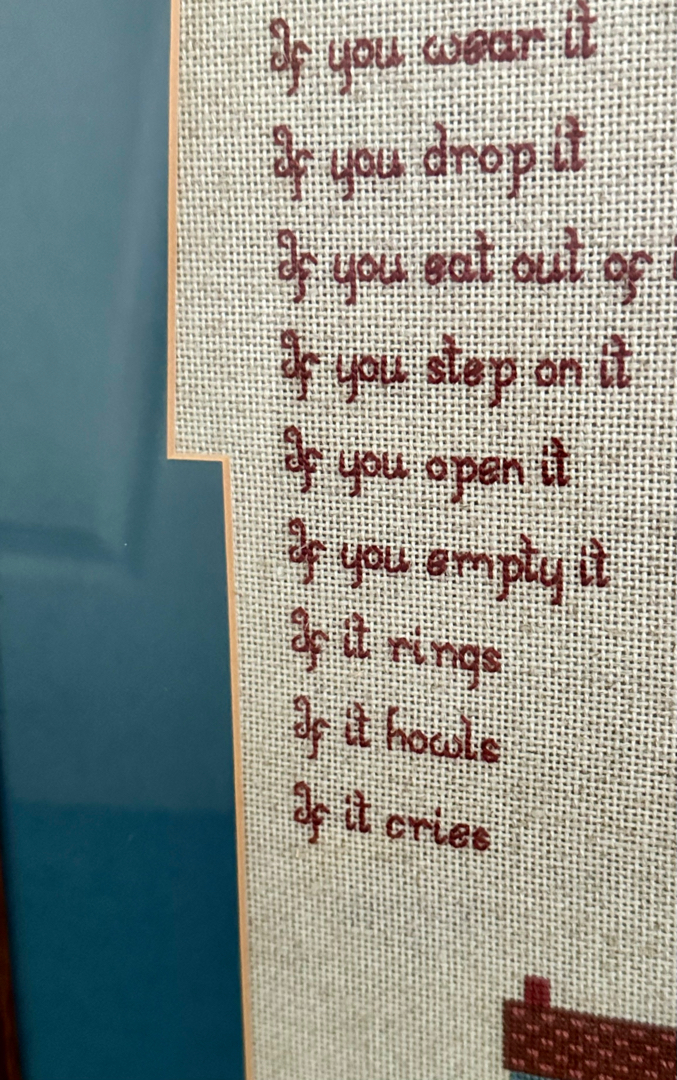 If you wear it
If you drop it
If you eat out of
If you step on it
If you open it
If you empty it
If it rings
If it howls
If it cries